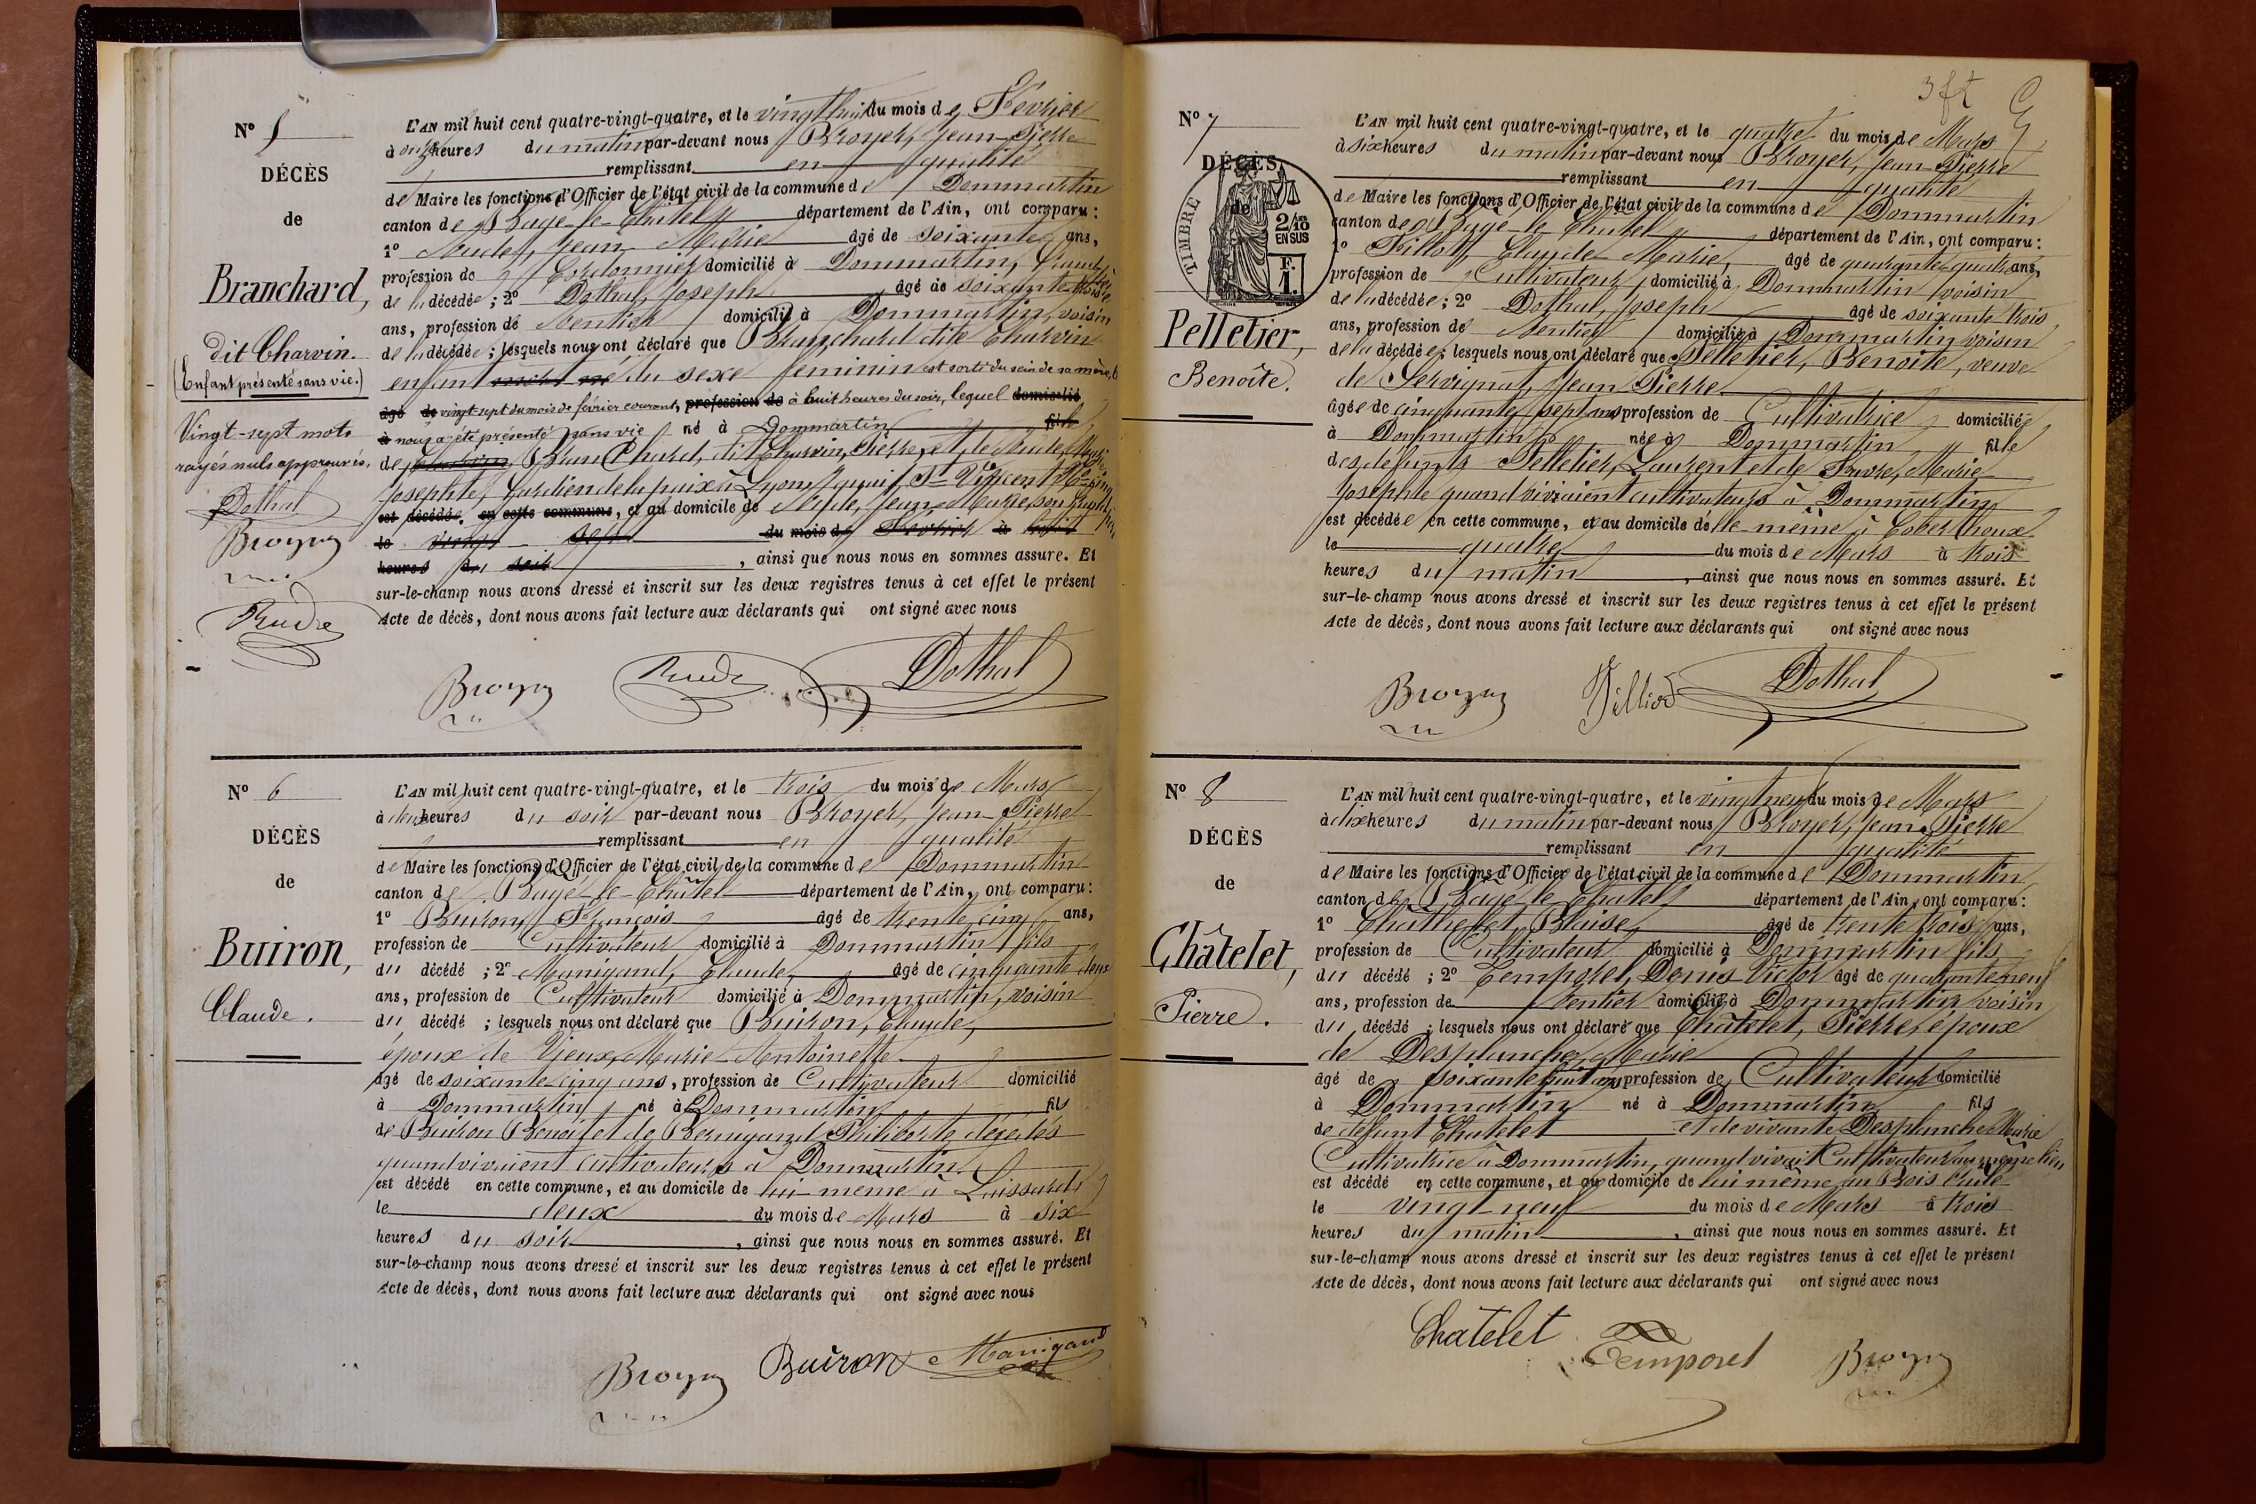 N° 5
DÉCÈS
de
Branchard,
dit Charvin.
(Enfant présenté sans vie.)
Vingt-sept mots
rayés nuls approuvés.
Dothal
Broyer
Rude
L'AN mil huit cent quatre-vingt-quatre, et le vingt huit du mois de Février
à onze heures du matin par-devant nous Broyer, Jean-Pierre
remplissant en qualité
de Maire les fonctions d'Officier de l'état civil de la commune de Dommartin
canton de Bagé-le-Châtel département de l'Ain, ont comparu :
1° Rude, Jean-Marie âgé de soixante ans,
profession de Cordonnier domicilié à Dommartin, Grand père
de la décédée ; 2° Dothal, Joseph âgé de soixante trois
ans, profession de Rentier domicilié à Dommartin, voisin
de la décédée ; lesquels nous ont déclaré que Branchard dite Charvin
enfant du sexe féminin est sorti du sein de sa mère, le
âgé de vingt sept du mois de février courant, profession de à huit heures du soir, lequel domicilié
à nous a été présenté sans vie né à Dommartin fille
de Branchard, dit Charvin, Pierre, et de Rude, Marie
Josephte, Gardien de la paix à Lyon, quai St Vincent
est décédée en cette commune, et au domicile de Rude, Jean-Marie, son Grand père
le vingt sept du mois de Février à huit
heures du soir, ainsi que nous nous en sommes assuré. Et
sur-le-champ nous avons dressé et inscrit sur les deux registres tenus à cet effet le présent
Acte de décès, dont nous avons fait lecture aux déclarants qui ont signé avec nous
Broyer Rude Dothal
N° 6
DÉCÈS
de
Buiron,
Claude.
L'AN mil huit cent quatre-vingt-quatre, et le trois du mois de Mars
à deux heures du soir par-devant nous Broyer, Jean-Pierre
remplissant en qualité
de Maire les fonctions d'Officier de l'état civil de la commune de Dommartin
canton de Bagé-le-Châtel département de l'Ain, ont comparu :
1° Buiron, François âgé de trente cinq ans,
profession de Cultivateur domicilié à Dommartin fils
du décédé ; 2° Manigand, Claude, âgé de cinquante deux
ans, profession de Cultivateur domicilié à Dommartin, voisin
du décédé ; lesquels nous ont déclaré que Buiron, Claude,
époux de Vieux, Marie-Antoinette
âgé de soixante cinq ans, profession de Cultivateur domicilié
à Dommartin, né à Dommartin fils
de Buiron Benoit et de Bernigaud Philiberte décédés
quand vivaient cultivateurs à Dommartin
est décédé en cette commune, et au domicile de lui-même à Loissard
le deux du mois de Mars à six
heures du soir, ainsi que nous nous en sommes assuré. Et
sur-le-champ nous avons dressé et inscrit sur les deux registres tenus à cet effet le présent
Acte de décès, dont nous avons fait lecture aux déclarants qui ont signé avec nous
Broyer Buiron Manigand
3 ft
N° 7
DÉCÈS
de
TIMBRE
2/10
EN SUS
F.
1.
Pelletier,
Benoîte.
L'AN mil huit cent quatre-vingt-quatre, et le quatre du mois de Mars
à six heures du matin par-devant nous Broyer, Jean-Pierre
remplissant en qualité
de Maire les fonctions d'Officier de l'état civil de la commune de Dommartin
canton de Bagé-le-Châtel département de l'Ain, ont comparu :
1° Tilliot, Claude-Marie, âgé de quarante-quatre ans,
profession de Cultivateur, domicilié à Dommartin voisin
de la décédée ; 2° Dothal, Joseph âgé de soixante trois
ans, profession de Rentier domicilié à Dommartin voisin
de la décédée ; lesquels nous ont déclaré que Pelletier, Benoîte, veuve
de Servignat, Jean Pierre
âgée de cinquante sept ans profession de Cultivatrice domiciliée
à Dommartin née à Dommartin fille
des défunts Pelletier, Laurent et de Favre, Marie
Josephte quand vivaient cultivateurs à Dommartin
est décédée en cette commune, et au domicile d'elle-même à
le quatre du mois de Mars à trois
heures du matin, ainsi que nous nous en sommes assuré. Et
sur-le-champ nous avons dressé et inscrit sur les deux registres tenus à cet effet le présent
Acte de décès, dont nous avons fait lecture aux déclarants qui ont signé avec nous
Broyer Tilliot Dothal
N° 8
DÉCÈS
de
Châtelet,
Pierre.
L'AN mil huit cent quatre-vingt-quatre, et le vingt neuf du mois de Mars
à dix heures du matin par-devant nous Broyer, Jean-Pierre
remplissant en qualité
de Maire les fonctions d'Officier de l'état civil de la commune de Dommartin
canton de Bagé-le-Châtel département de l'Ain, ont comparu :
1° Châthelet, Blaise, âgé de trente trois ans,
profession de Cultivateur domicilié à Dommartin fils
du décédé ; 2° Temporel, Denis Victor âgé de quarante neuf
ans, profession de rentier domicilié à Dommartin voisin
du décédé ; lesquels nous ont déclaré que Châtelet, Pierre, époux
de Desplanche, Marie
âgé de soixante huit ans profession de Cultivateur domicilié
à Dommartin né à Dommartin fils
de défunt Châtelet et de vivante Desplanche Marie
Cultivatrice à Dommartin, quand vivait Cultivateur au même lieu
est décédé en cette commune, et au domicile de lui même au Bois
le vingt neuf du mois de Mars à trois
heures du matin, ainsi que nous nous en sommes assuré. Et
sur-le-champ nous avons dressé et inscrit sur les deux registres tenus à cet effet le présent
Acte de décès, dont nous avons fait lecture aux déclarants qui ont signé avec nous
Chatelet Temporel Broyer